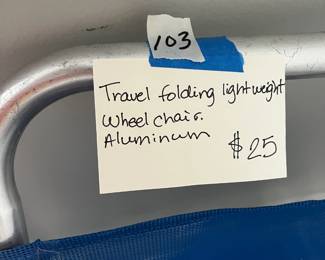 103
Travel folding lightweight
Wheel chair.
Aluminum
$25